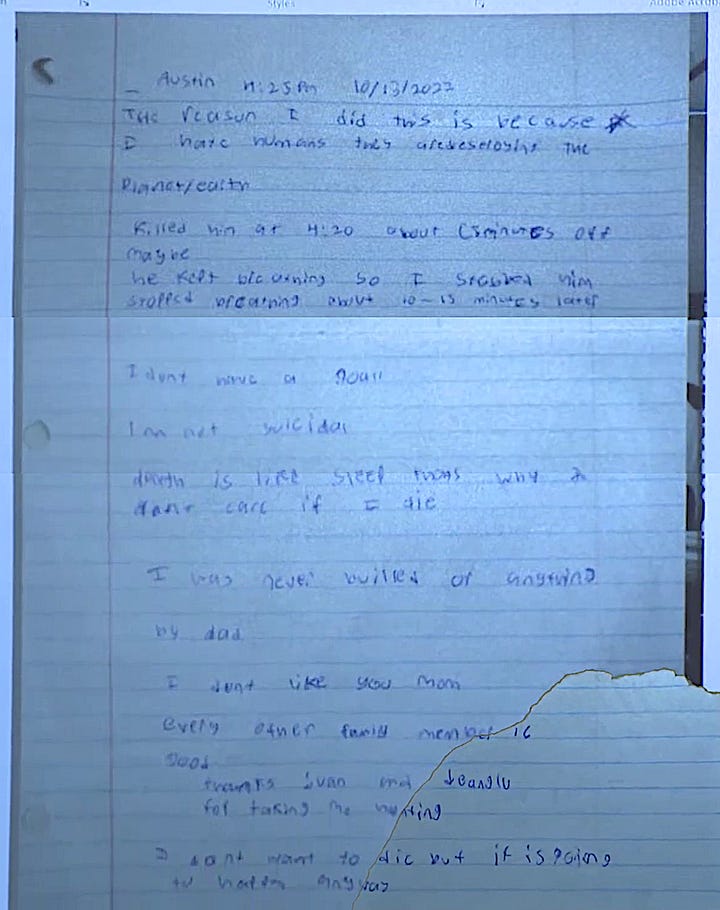 Styles
Adobe Acrob
_ Austin 4:25 Pm 10/13/2022
The reason I did this is because
I hate humans they are the
Planet/earth
Killed him at 4:20 about (5 minutes off
maybe
he kept breathing so I stabbed him
stopped breathing about 10-15 minutes later
I dont have a goal
Im not suicidal
death is like sleep thats why I
dont care if I die
I was never bullied or anything
by dad
I dont like you mom
Every other family member is
good
thanks Ivan and
for taking me hunting
I dont want to die but if is going
to happen anyway